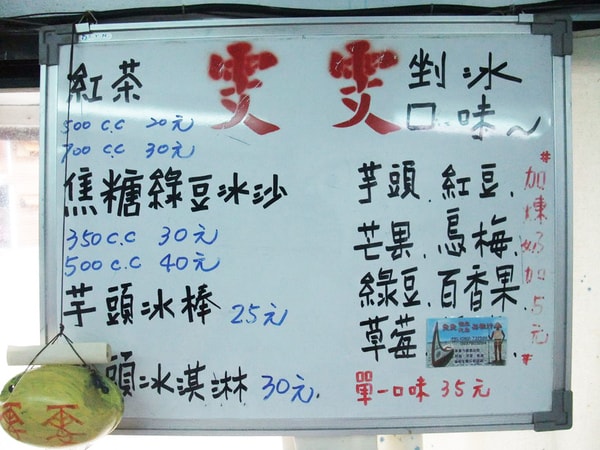 雯 雯
紅茶
500 c.c 20元
700 c.c 30元
焦糖綠豆冰沙
350 c.c 30元
500 c.c 40元
芋頭冰棒 25元
頭冰淇淋 30元.
剉冰
口味~
芋頭.紅豆.
芒果.烏梅.
綠豆.百香果.
草莓
單一口味 35元
*加煉奶加5元*